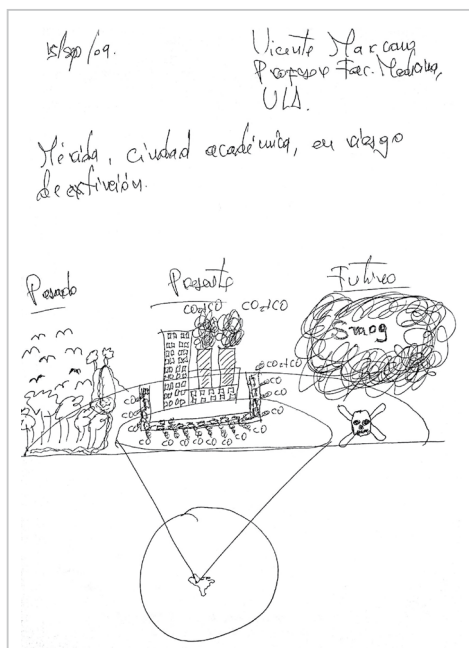 15/sep/09.
Vicente Marcano
Profesor Fac. Medicina,
ULA.
Mérida, ciudad académica, en riesgo
de extinción.
Pasado
Presente
Futuro
CO₂+CO CO₂+CO
Smog
CO₂+CO
CO CO
CO CO
CO CO
CO CO CO CO CO CO CO CO